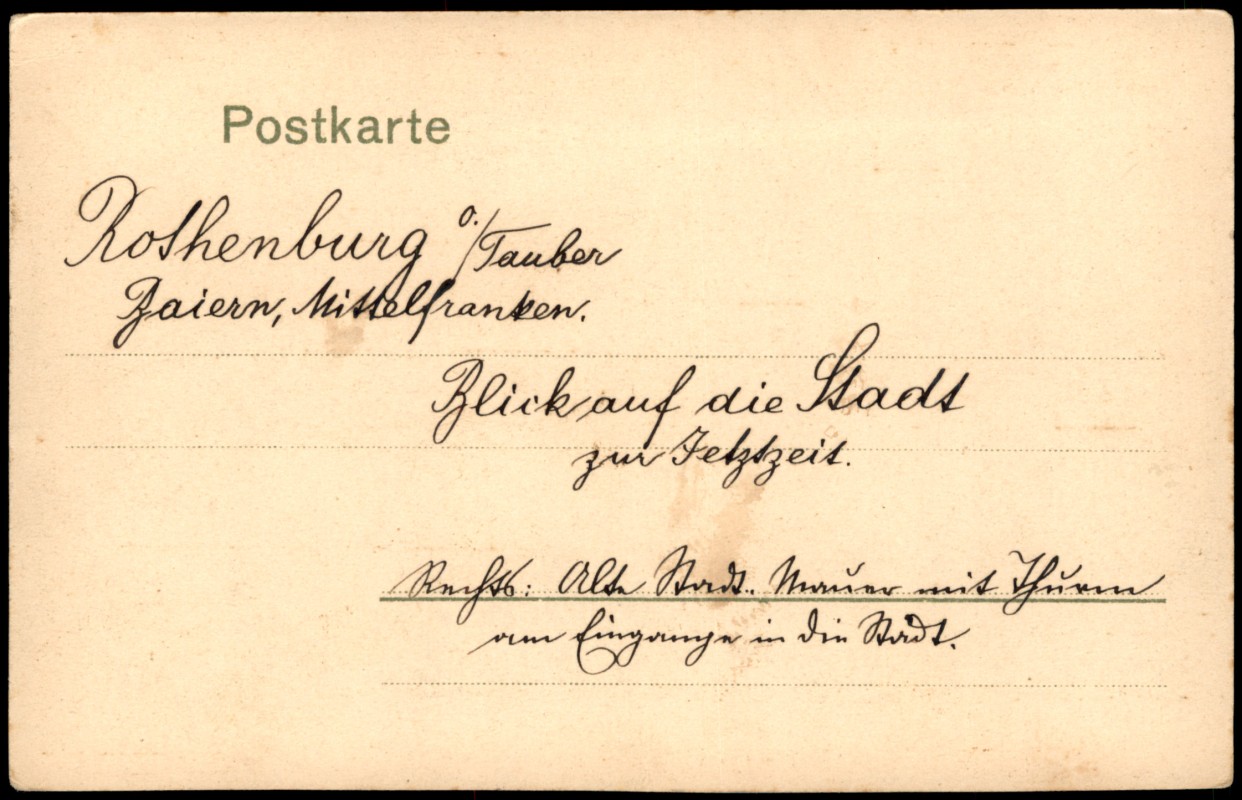 Postkarte
Rothenburg o./Tauber
Baiern, Mittelfranken.
Blick auf die Stadt
zur Jetztzeit.
Rechts: Alte Stadt-Mauer mit Thurm
am Eingange in die Stadt.